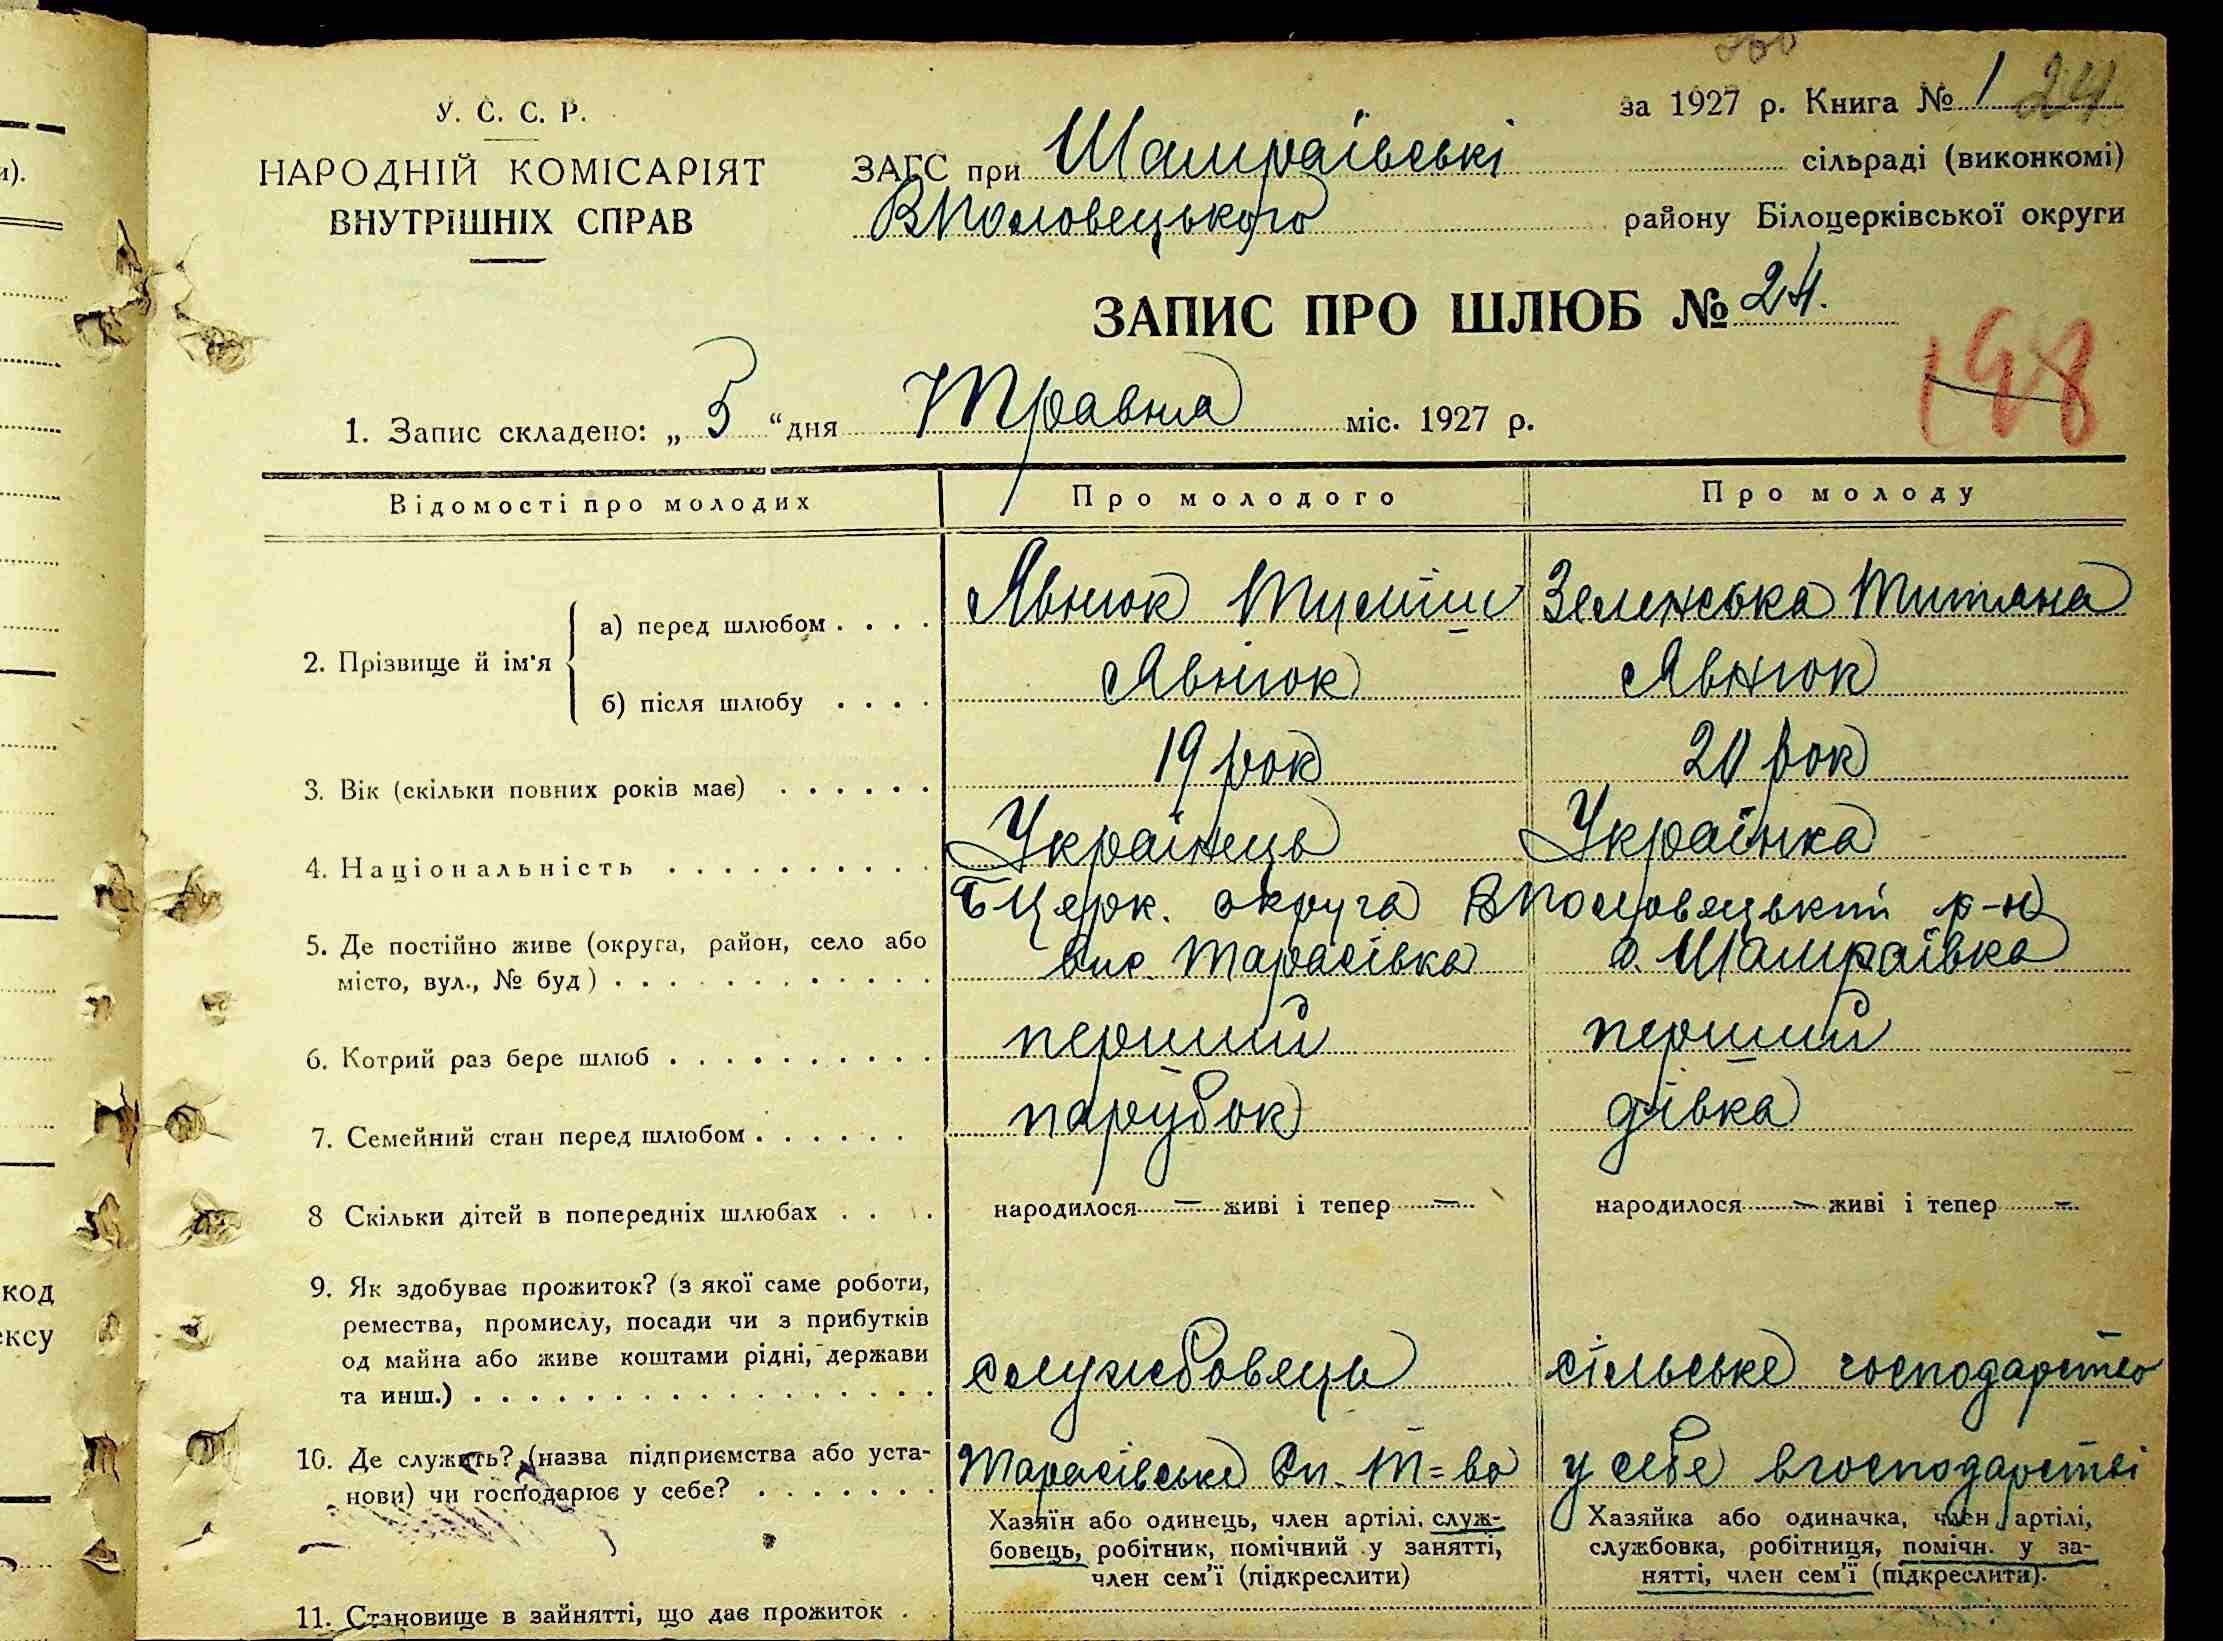 У. С. С. Р.
НАРОДНІЙ КОМІСАРІЯТ
ВНУТРІШНІХ СПРАВ
за 1927 р. Книга № 1 24
ЗАГС при Шамраївські сільраді (виконкомі)
ВПоловецького району Білоцерківської округи
ЗАПИС ПРО ШЛЮБ № 24.
198
1. Запис складено: „ 5 “ дня Травня міс. 1927 р.
Відомості про молодих Про молодого Про молоду
2. Прізвище й ім'я
а) перед шлюбом . . . . Явнюк Зеленська Титяна
б) після шлюбу . . . . Явнюк Явнюк
3. Вік (скільки повних років має) . . . . . . 19 рок 20 рок
4. Національність . . . . . . . . . . Українець Українка
Б Церк. округа ВПоловецький р-н
5. Де постійно живе (округа, район, село або
місто, вул., № буд) . . . . . . . . . . . . . вис. Тарасівка с. Шамраївка
6. Котрий раз бере шлюб . . . . . . . . . . перший перший
7. Семейний стан перед шлюбом . . . . . . парубок дівка
8 Скільки дітей в попередніх шлюбах . . . . народилося = живі і тепер = народилося = живі і тепер =
9. Як здобуває прожиток? (з якої саме роботи,
ремества, промислу, посади чи з прибутків
од майна або живе коштами рідні, держави
та инш.) . . . . . . . . . . . . . . . . . . службовець сільське господарство
10. Де служить? (назва підприємства або уста-
нови) чи господарює у себе? . . . . . . . Тарасівське Сп. Т=во у себе в господарстві
Хазяїн або одинець, член артілі, служ-
бовець, робітник, помічний у занятті,
член сем'ї (підкреслити)
Хазяйка або одиначка, член артілі,
службовка, робітниця, помічн. у за-
нятті, член сем'ї (підкреслити).
11. Становище в зайнятті, що дає прожиток .
и).
код
ексу